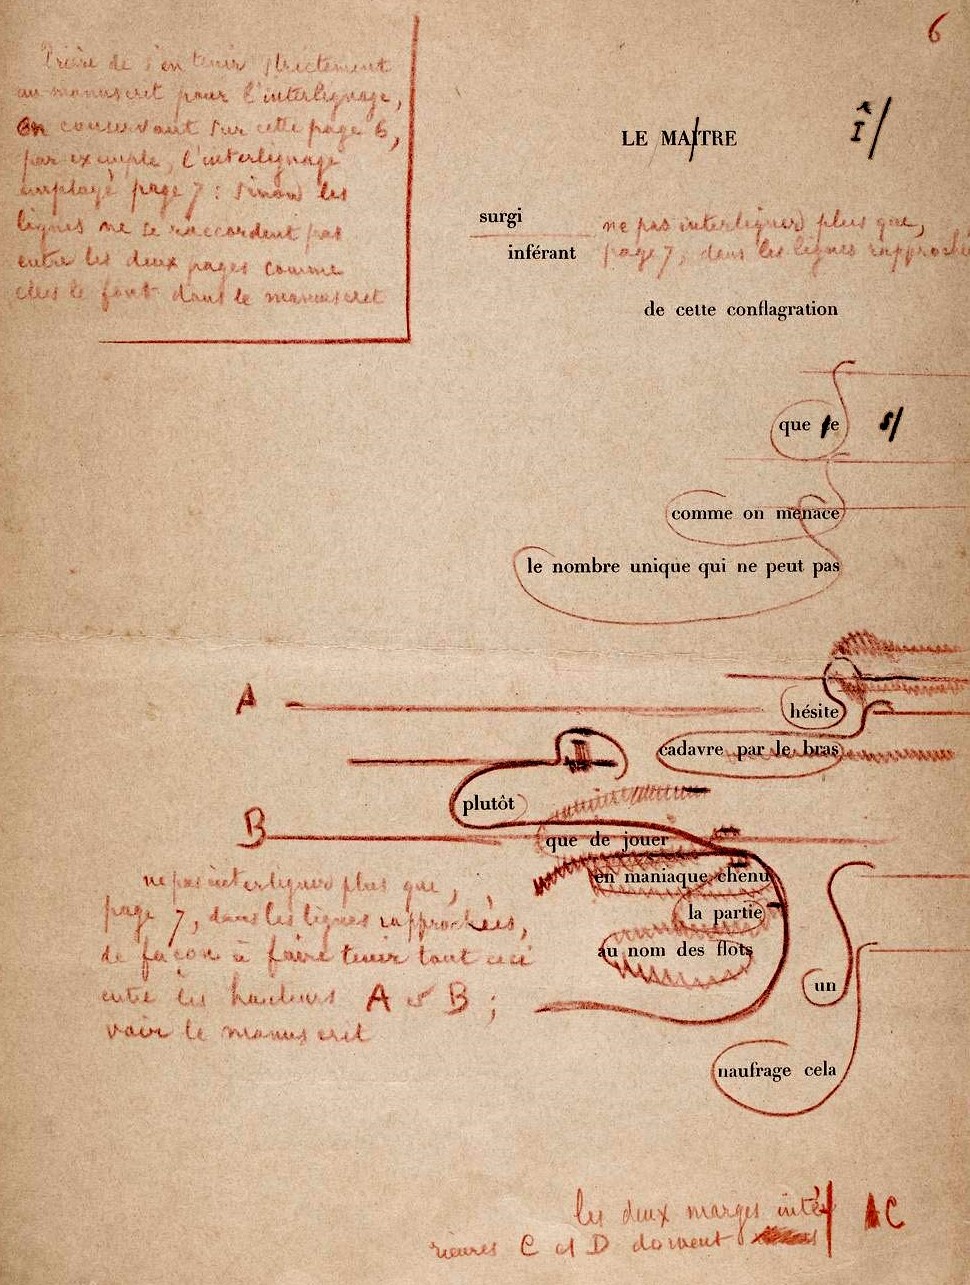 6
Prière de s'en tenir strictement
au manuscrit pour l'interlignage,
en conservant sur cette page 6,
par exemple, l'interlignage
employé page 7 : sinon les
lignes ne se raccordent pas
entre les deux pages comme
elles le font dans le manuscrit
LE MAITRE
Î/
surgi
ne pas interligner plus que,
inférant
page 7, dans les lignes rapproché
de cette conflagration
que le s/
comme on menace
le nombre unique qui ne peut pas
A
hésite
cadavre par le bras
plutôt
B
que de jouer
en maniaque chenu
la partie
au nom des flots
ne pas interligner plus que,
page 7, dans les lignes rapprochées,
de façon à faire tenir tout ceci
entre les hauteurs A et B ;
voir le manuscrit
un
naufrage cela
les deux marges inté
rieures C et D doivent
C